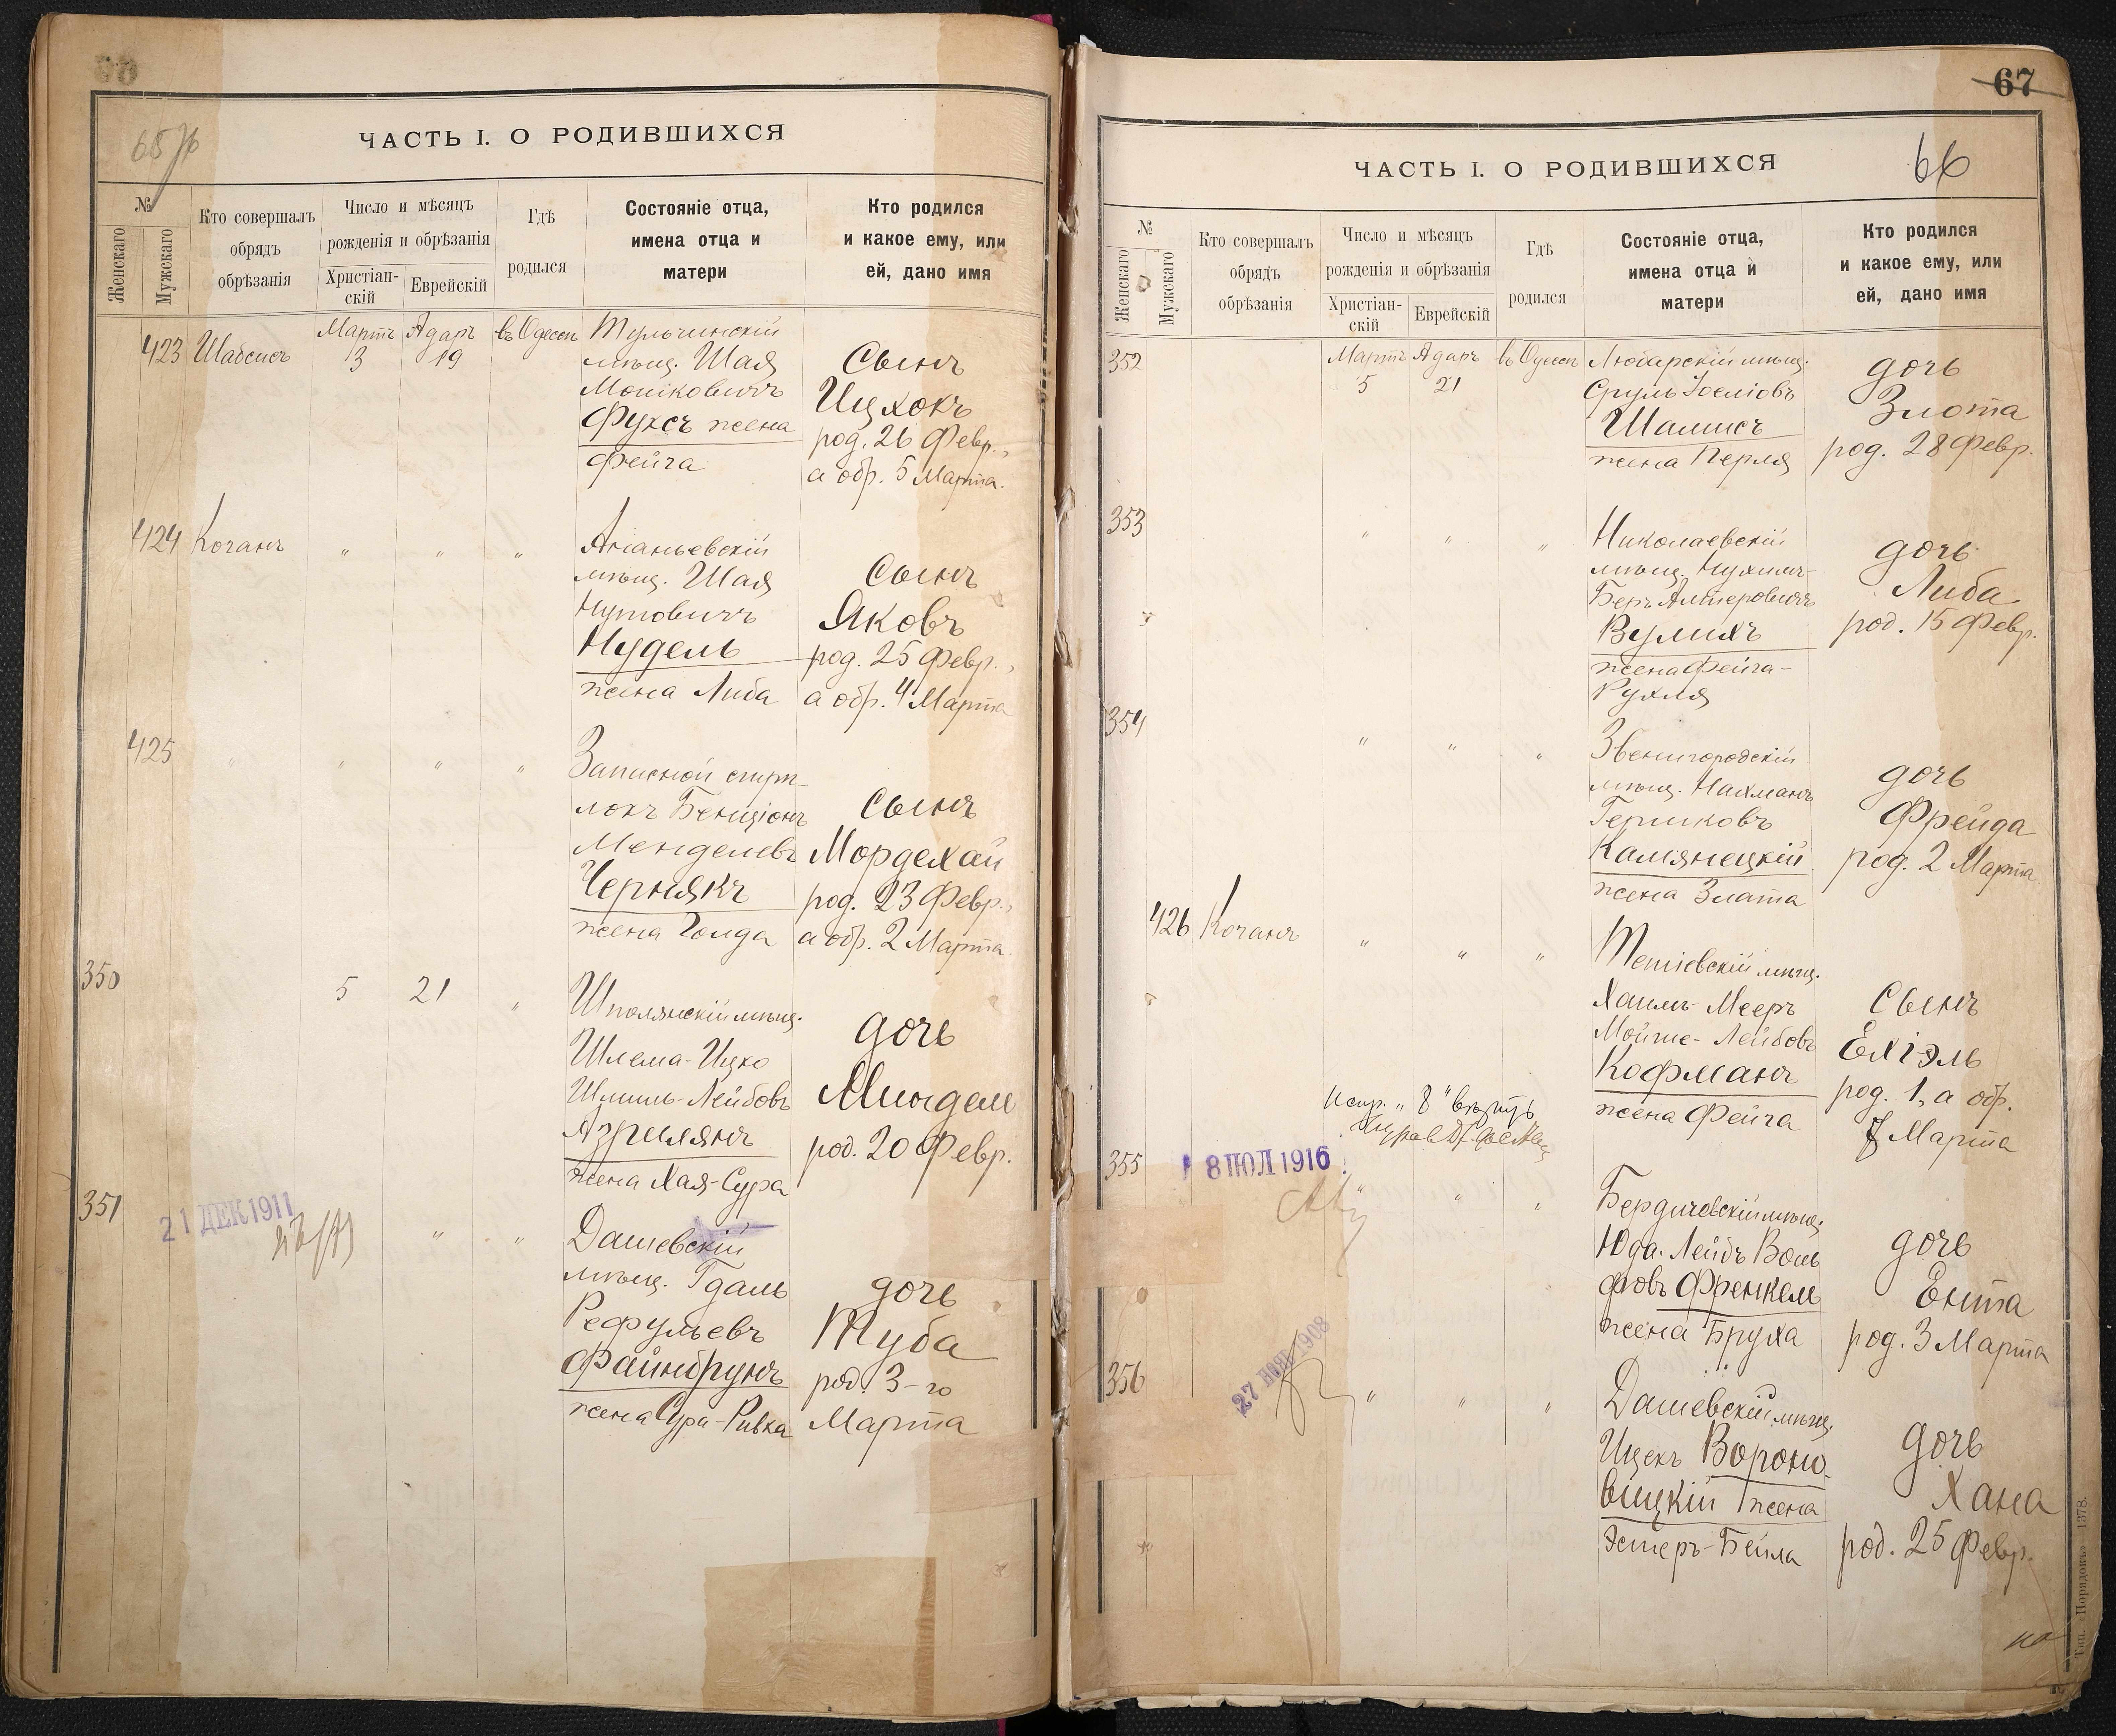 65 об
ЧАСТЬ I. О РОДИВШИХСЯ
№
Женскаго
Мужскаго
Кто совершалъ
обрядъ
обрѣзанія
Число и мѣсяцъ
рожденія и обрѣзанія
Христіан-
скій
Еврейскій
Гдѣ
родился
Состояніе отца,
имена отца и
матери
Кто родился
и какое ему, или
ей, дано имя
423 Шабсисъ Мартъ 3 Адаръ 19 въ Одессѣ
Тульчинскій
мѣщ. Шая
Моніковичъ
Фуксъ жена
Фейга
Сынъ
Ицхокъ
род. 26 Февр.,
а обр. 5 Марта.
424 Коганъ " " "
Ананьевскій
мѣщ. Шая
Нутовичъ
Нудель
жена Либа
Сынъ
Яковъ
род. 25 Февр.,
а обр. 4 Марта
425 " " " "
Записной
Бенціонъ
Менделевъ
Чернякъ
жена Голда
Сынъ
Мордехай
род. 23 Февр.,
а обр. 2 Марта.
350 5 21 "
Шполянскій мѣщ.
Шлема-Ицко
Шмиль-Лейбовъ
Азрилянъ
жена Хая-Сура
дочь
Миндель
род. 20 Февр.
351 " "
21 ДЕК 1911
Дашевскій
мѣщ. Гдаль
Рефульевъ
Файнбрунъ
жена Сура-Ривка
дочь
Туба
род. 3-го
Марта
67
66
ЧАСТЬ I. О РОДИВШИХСЯ
№
Женскаго
Мужскаго
Кто совершалъ
обрядъ
обрѣзанія
Число и мѣсяцъ
рожденія и обрѣзанія
Христіан-
скій
Еврейскій
Гдѣ
родился
Состояніе отца,
имена отца и
матери
Кто родился
и какое ему, или
ей, дано имя
352 Мартъ 5 Адаръ 21 въ Одессѣ
Любарскій мѣщ.
Сруль Іосіовъ
Шамисъ
жена Перля
дочь
Злота
род. 28 Февр.
353 " " "
Николаевскій
мѣщ. Нухимъ-
Беръ Алтеровичъ
Вулихъ
жена Фейга-
Рухля
дочь
Либа
род. 15 Февр.
354 " " "
Звенигородскій
мѣщ. Нахманъ
Гершковъ
Камянецкій
жена Злата
дочь
Фрейда
род. 2 Марта
426 Коганъ " " "
Тетіевскій мѣщ.
Хаимъ-Мееръ
Мойше-Лейбовъ
Кофманъ
жена Фейга
Сынъ
Ехіэль
род. 1, а обр.
8 Марта
Испр. "8" вѣрить
355 " " "
18 ІЮЛ 1916
Бердичевскій мѣщ.
Юда-Лейбъ Воль
фовъ Френкель
жена Бруха
дочь
Ента
род. 3 Марта
356 " " "
27 НОЯБ 1908
Дашевскій мѣщ.
Ицекъ Вороно-
вицкій жена
Эстеръ-Бейла
дочь
Хана
род. 25 Февр.
Тип. «Порядокъ»—1378.